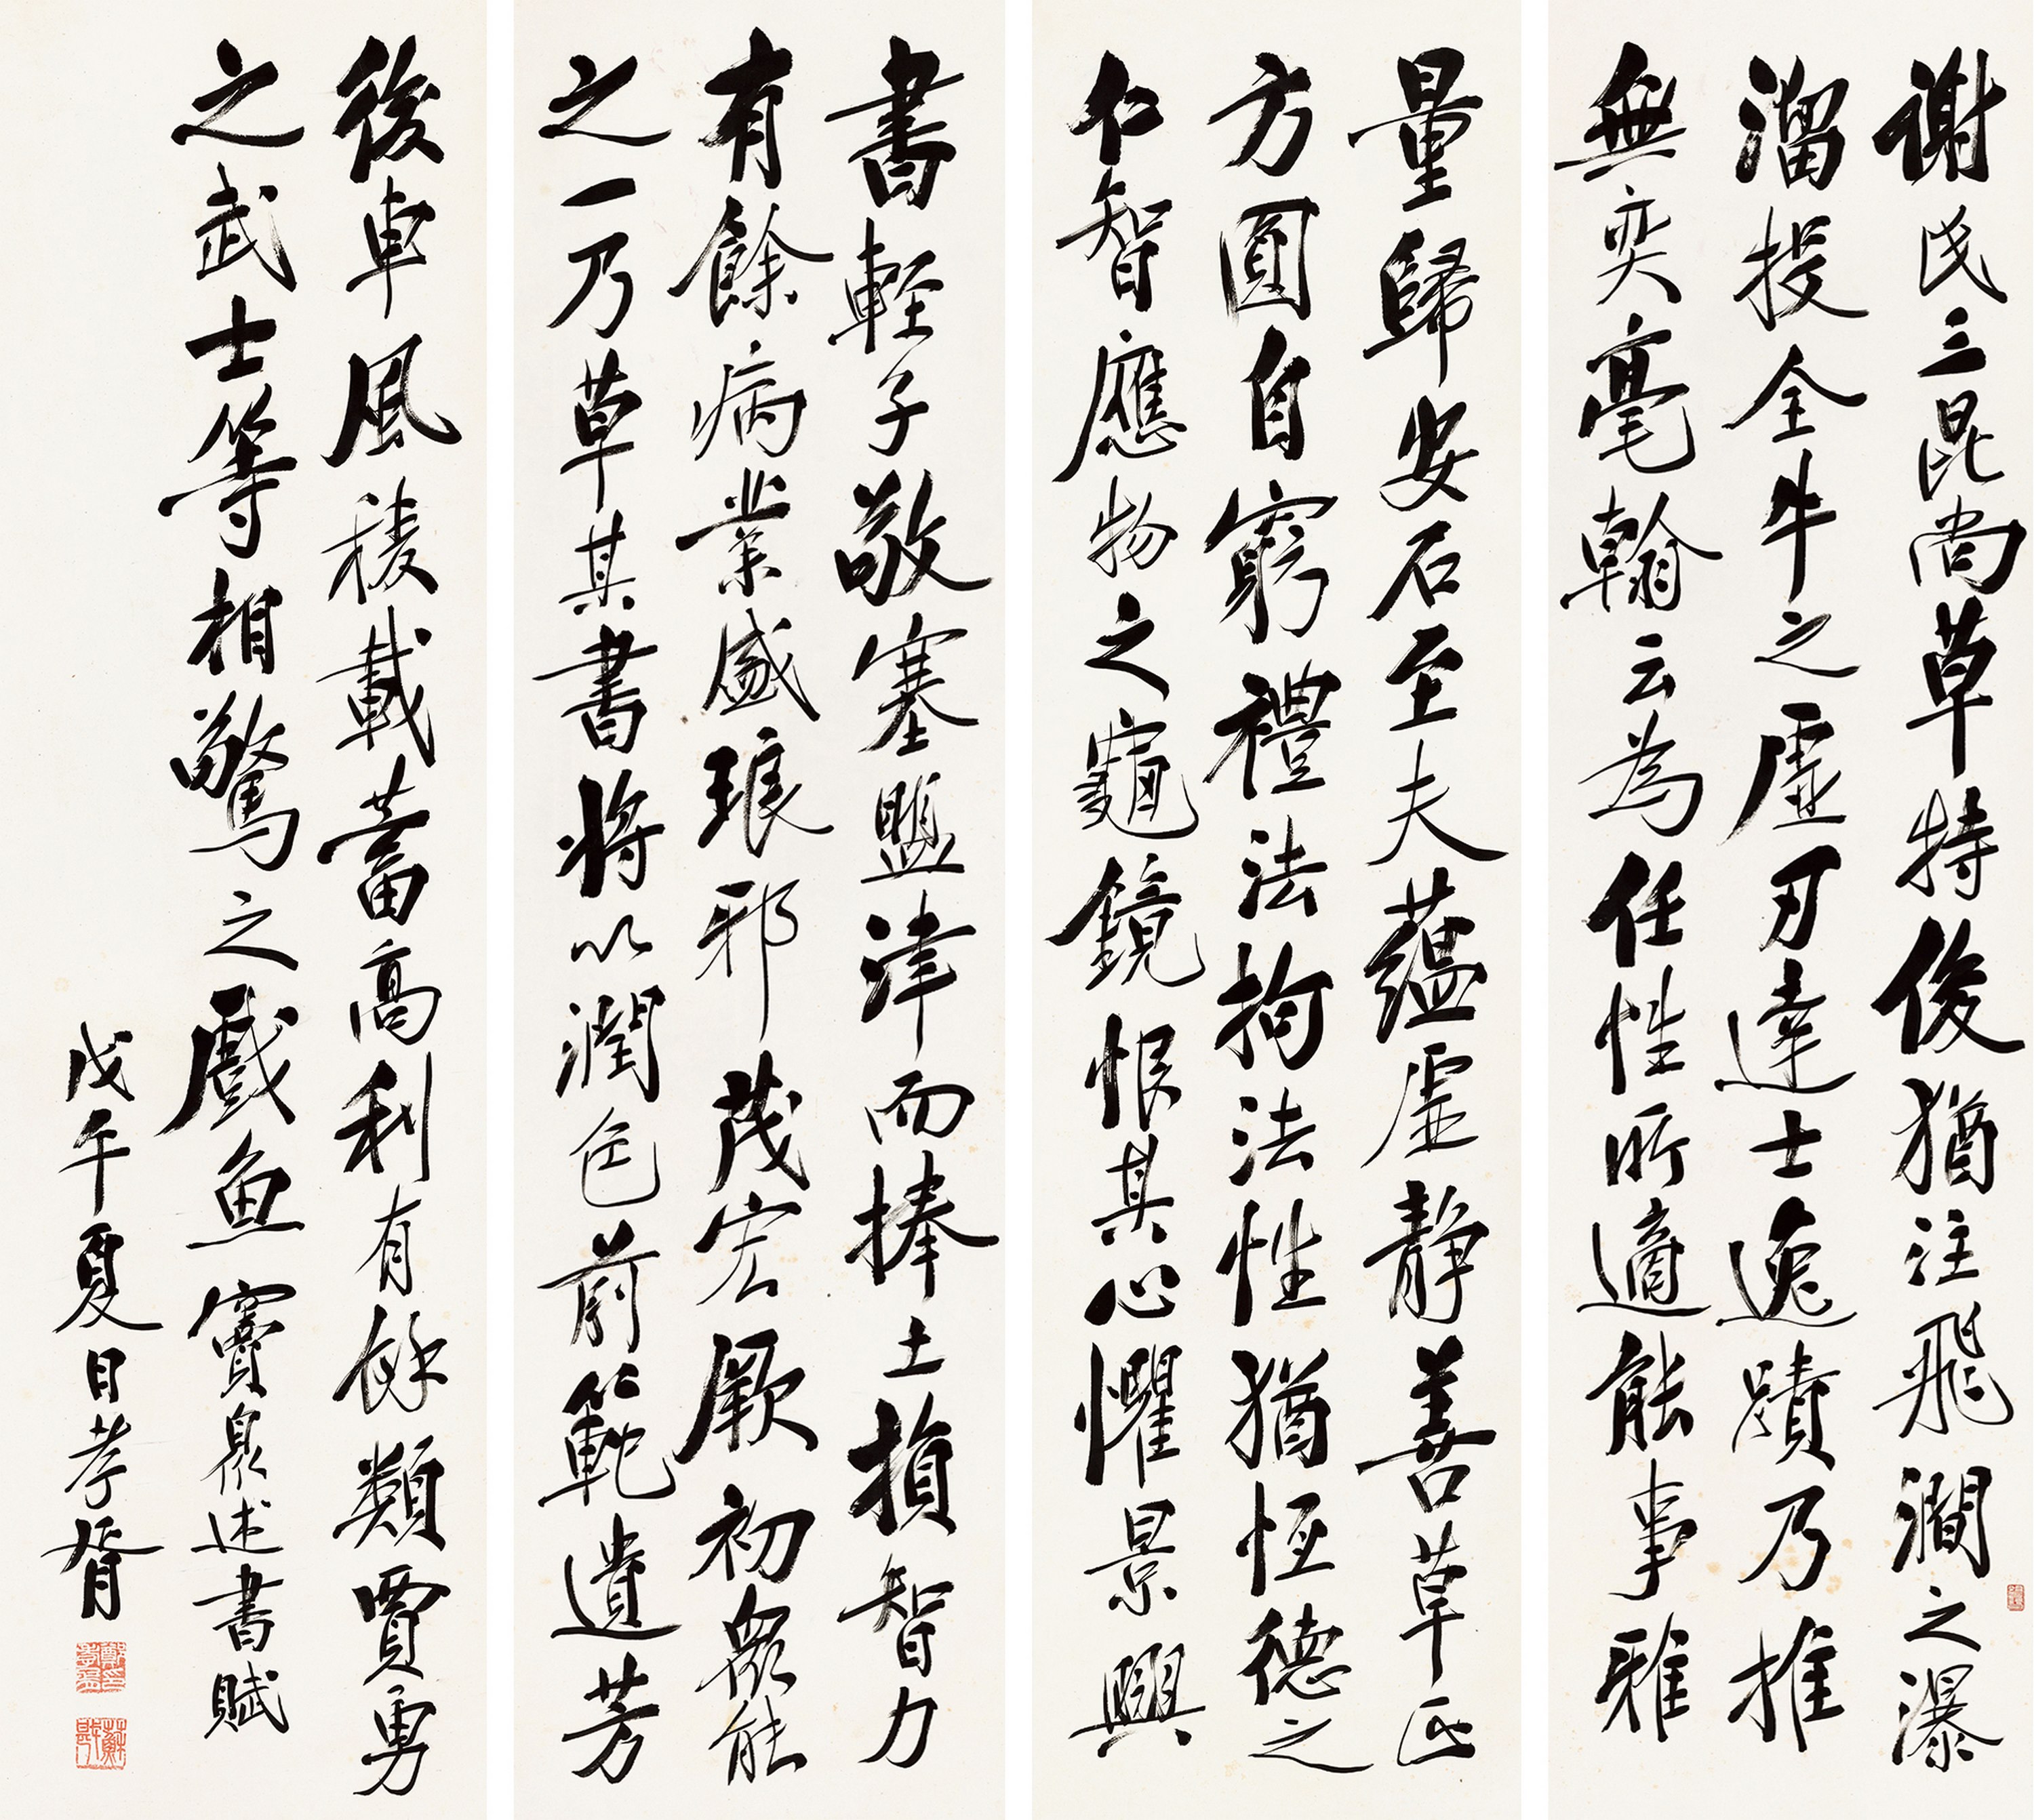 謝氏三昆尚草特俊猶注飛澗之瀑
溜投全牛之虛刃達士逸蹟乃推
無奕毫翰云為任性所適能事雅
量歸安石至夫蘊虛靜善草正
方圓自窮禮法拘法性猶恆德之
仁智應物之龜鏡恨其心懼景興
書輕子敬塞盟津而捧土損智力
有餘病業盛琅邪茂宏厥初眾能
之一乃草其書將以潤色前範遺芳
後車風稜載蓄高利有餘類賈勇
之武士等相驚之戲魚 竇臮述書賦
戊午夏日孝胥
鄭孝胥印
蘇戡